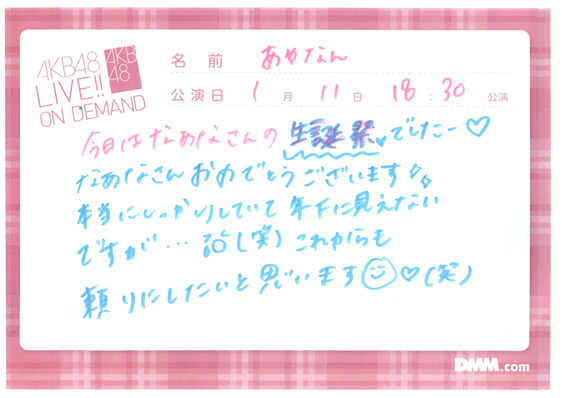 AKB48
LIVE!!
ON DEMAND
AKB
48
名前 あやなん
公演日 1月 11日 18:30 公演
今日はなあなさんの生誕祭でしたー♡
なあなさんおめでとうございます
本当にしっかりしていて年下に見えない
ですが…(笑)これからも
頼りにしたいと思います♡(笑)
DMM.com